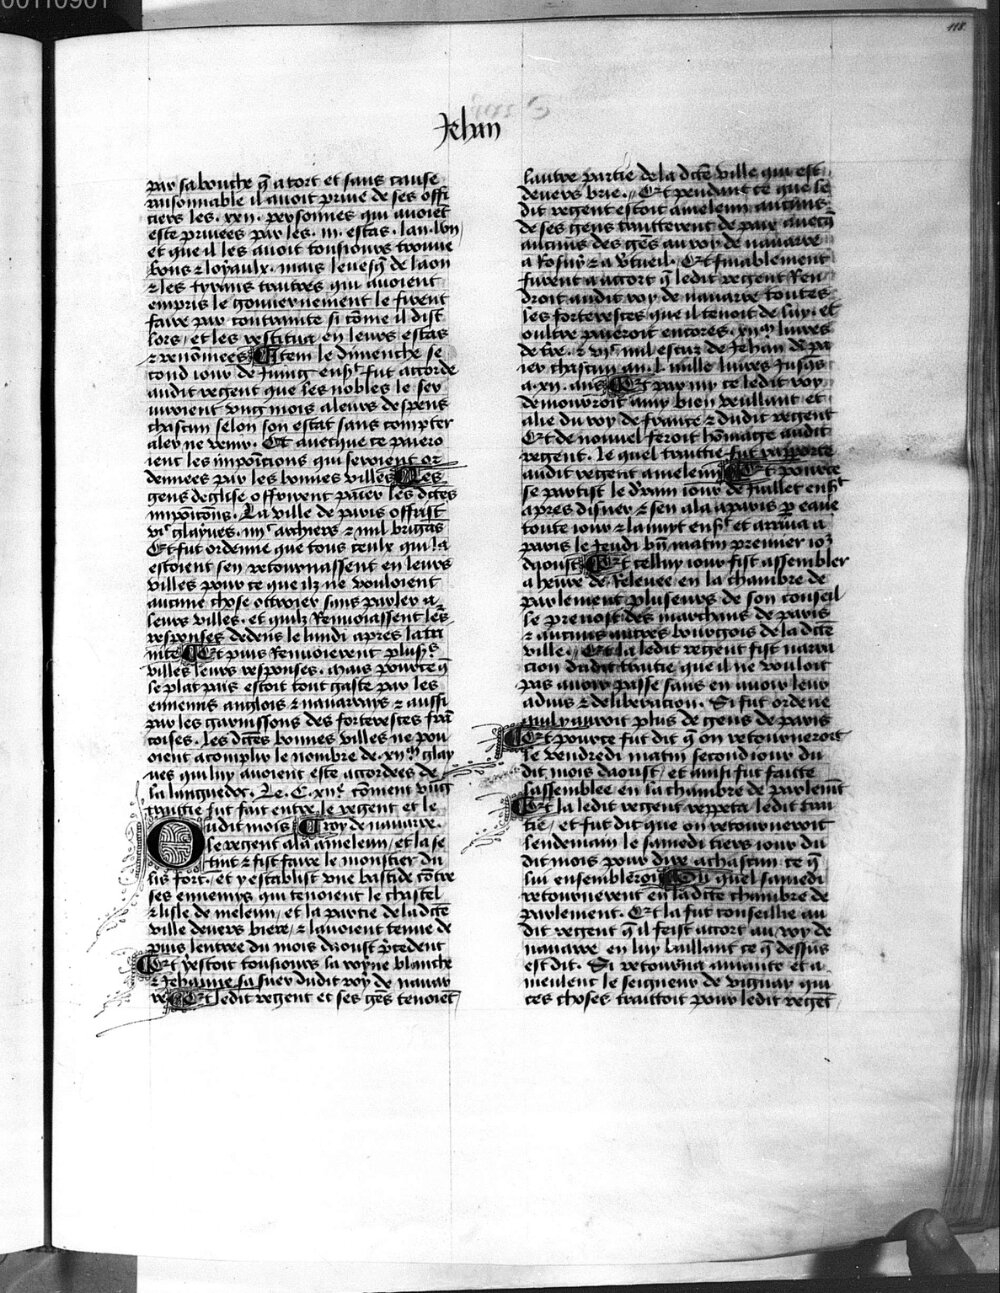 00110901
118
Jehan
par sa bouche q̄ a tort et sans cause
raisonnable il auoit priue de ses offi
ciers les .xxii. personnes qui auoiēt
este priuees par les .iii. estas . lan .lvii
et que il les auoit tousiours trouue
bons & loyaulx . mais leuesq̄ de laon
& les tyrans traitres qui auoient
empris le gouuernement le firent
faire par contrainte si cōme il dist
lors / et les restitua en leurs estas
& renōmees Item le dimenche se
cond iour de Juing ensʳ fut accorde
audit regent que les nobles le ser
uiroient vng mois a leurs despens
chascun selon son estat sans compter
aler ne venir . Et auecque ce paiero
ient les imposicions qui seroient or
dennees par les bonnes villes Les
gens deglise offrirent paier les dc̄es
imposicōns . La ville de paris offrist
viᶜ glayues . iiiiᶜ archiers & mil brigās
Et fut ordenne que tous ceulx qui la
estoient sen retournassent en leurs
villes pour ce que ilz ne vouloient
aucune chose ottroier sans parler a
leurs villes . et quilz Renuoiassent les
responses dedens le lundi apres la tri
nite Et puis Renuoierent plusʳˢ
villes leurs responses . Mais pource q̄
le plat pais estoit tout gaste par les
ennemis anglois & nauarrays & aussi
par les garnissons des forteresces frā
coises . les dc̄es bonnes villes ne pou
oient acomplir le nombre de .xiiᵐ glay
ues qui luy auoient este accordees de
la languedoc . Le .C.xiiᵉ cōment vng
traictie fut fait entre le regent et le
Oudit mois roy de nauarre .
le regent ala a meleun / et la se
tint & fist faire le monstier du
lis fort . et y establist vne bastide cōtre
ses ennemys qui tenoient le chastel
& lisle de meleun / et la partie de la dc̄e
ville deuers biere / & lauoient tenue de
puis lentree du mois daoust p̄cedent
Et y estoit tousiours la royne blanche
& Jehanne sa suer du dit roy de nauar
re Et ledit regent et ses gēs tenoiēt
lautre partie de la dc̄e ville qui est
deuers brie . Et pendant ce que le
dit regent estoit a meleun aucuns
de ses gens traittierent de paix auecq̄
aucuns des gēs au roy de nauarre
a Rosny & a Vtueil . Et finablement
furent a accort q̄ ledit regent Ren
droit audit roy de nauarre toutes
les forteresces que il tenoit de luy . et
oultre paieroit encores .xiiᵐ liures
de tre . & viᶜ mil escuz de Jehan de pa
ier chascun an .l. mille liures iusq̄s
a .xii. ans Et par my ce ledit roy
demourroit amy bien veullant et
alie du roy de france & dudit regent
Et de nouuel feroit hōmaige audit
regent . le quel traittie fut rapporte
audit regent a meleun Et pource
se partist le dr̄ain iour de Juillet ensʳ
apres disner & sen ala a paris p̱ eaue
toute iour & la nuyt ensʳ et arriua a
paris le Jeudi bn̄ matin premier ioʳ
daoust Et celluy iour fist assembler
a heure de Releuee en la chambre de
parlement plusieurs de son conseil
le preuost des marchans de paris
& aucuns autres bourgois de la dc̄e
ville . Et la ledit regent fist narra
cion dudit traittie que il ne vouloit
pas auoir passe sans en auoir leur
aduis & deliberacion . Si fut ordene
quil y auroit plus de gens de paris
Et pource fut dit q̄ on retourneroit
le vendredi matin second iour du
dit mois daoust / et ainsi fut faitte
lassemblee en la chambre de parlemēt
Et la ledit regent repeta ledit trai
tie / et fut dit que on retourneroit
lendemain le samedi tiers iour du
dit mois pour dire a chascun ce q̄
lui en sembleroit Ou quel samedi
retournerent en la dc̄e chambre de
parlement . Et la fut conseillie au
dit regent q̄ il feist accort au roy de
nauarre en luy baillant ce q̄ dessus
est dit . Si retourna auant et a
meulent le seigneur de vignay qui
ces choses traittoit pour ledit regēt